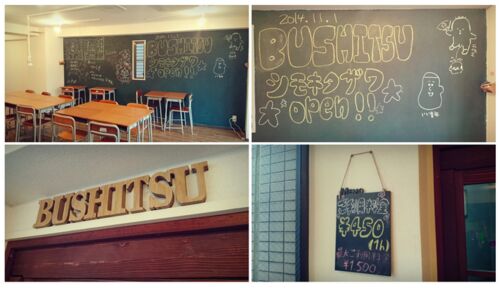 BUSHITSU
シモキタザワ
open!!
2014.11.1
BUSHITSU
シモキタザワ
open!!
BUSHITSU
ご利用料金
¥450
(1h)
¥1500